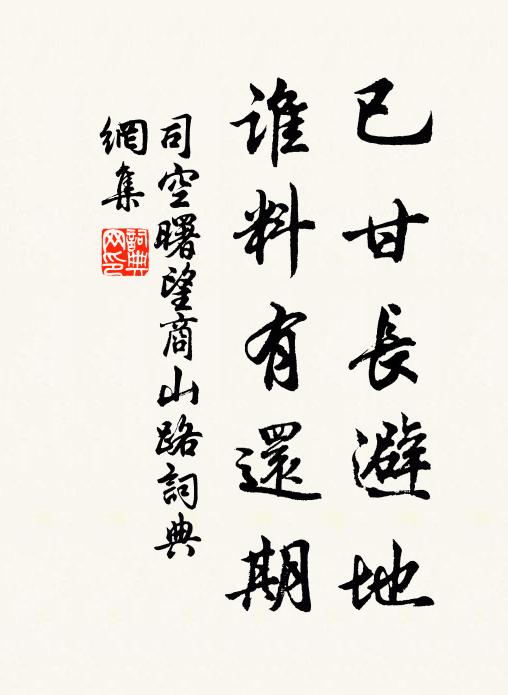 已甘長避地
誰料有還期
司空曙望商山路詞典
網集
詞典
网印